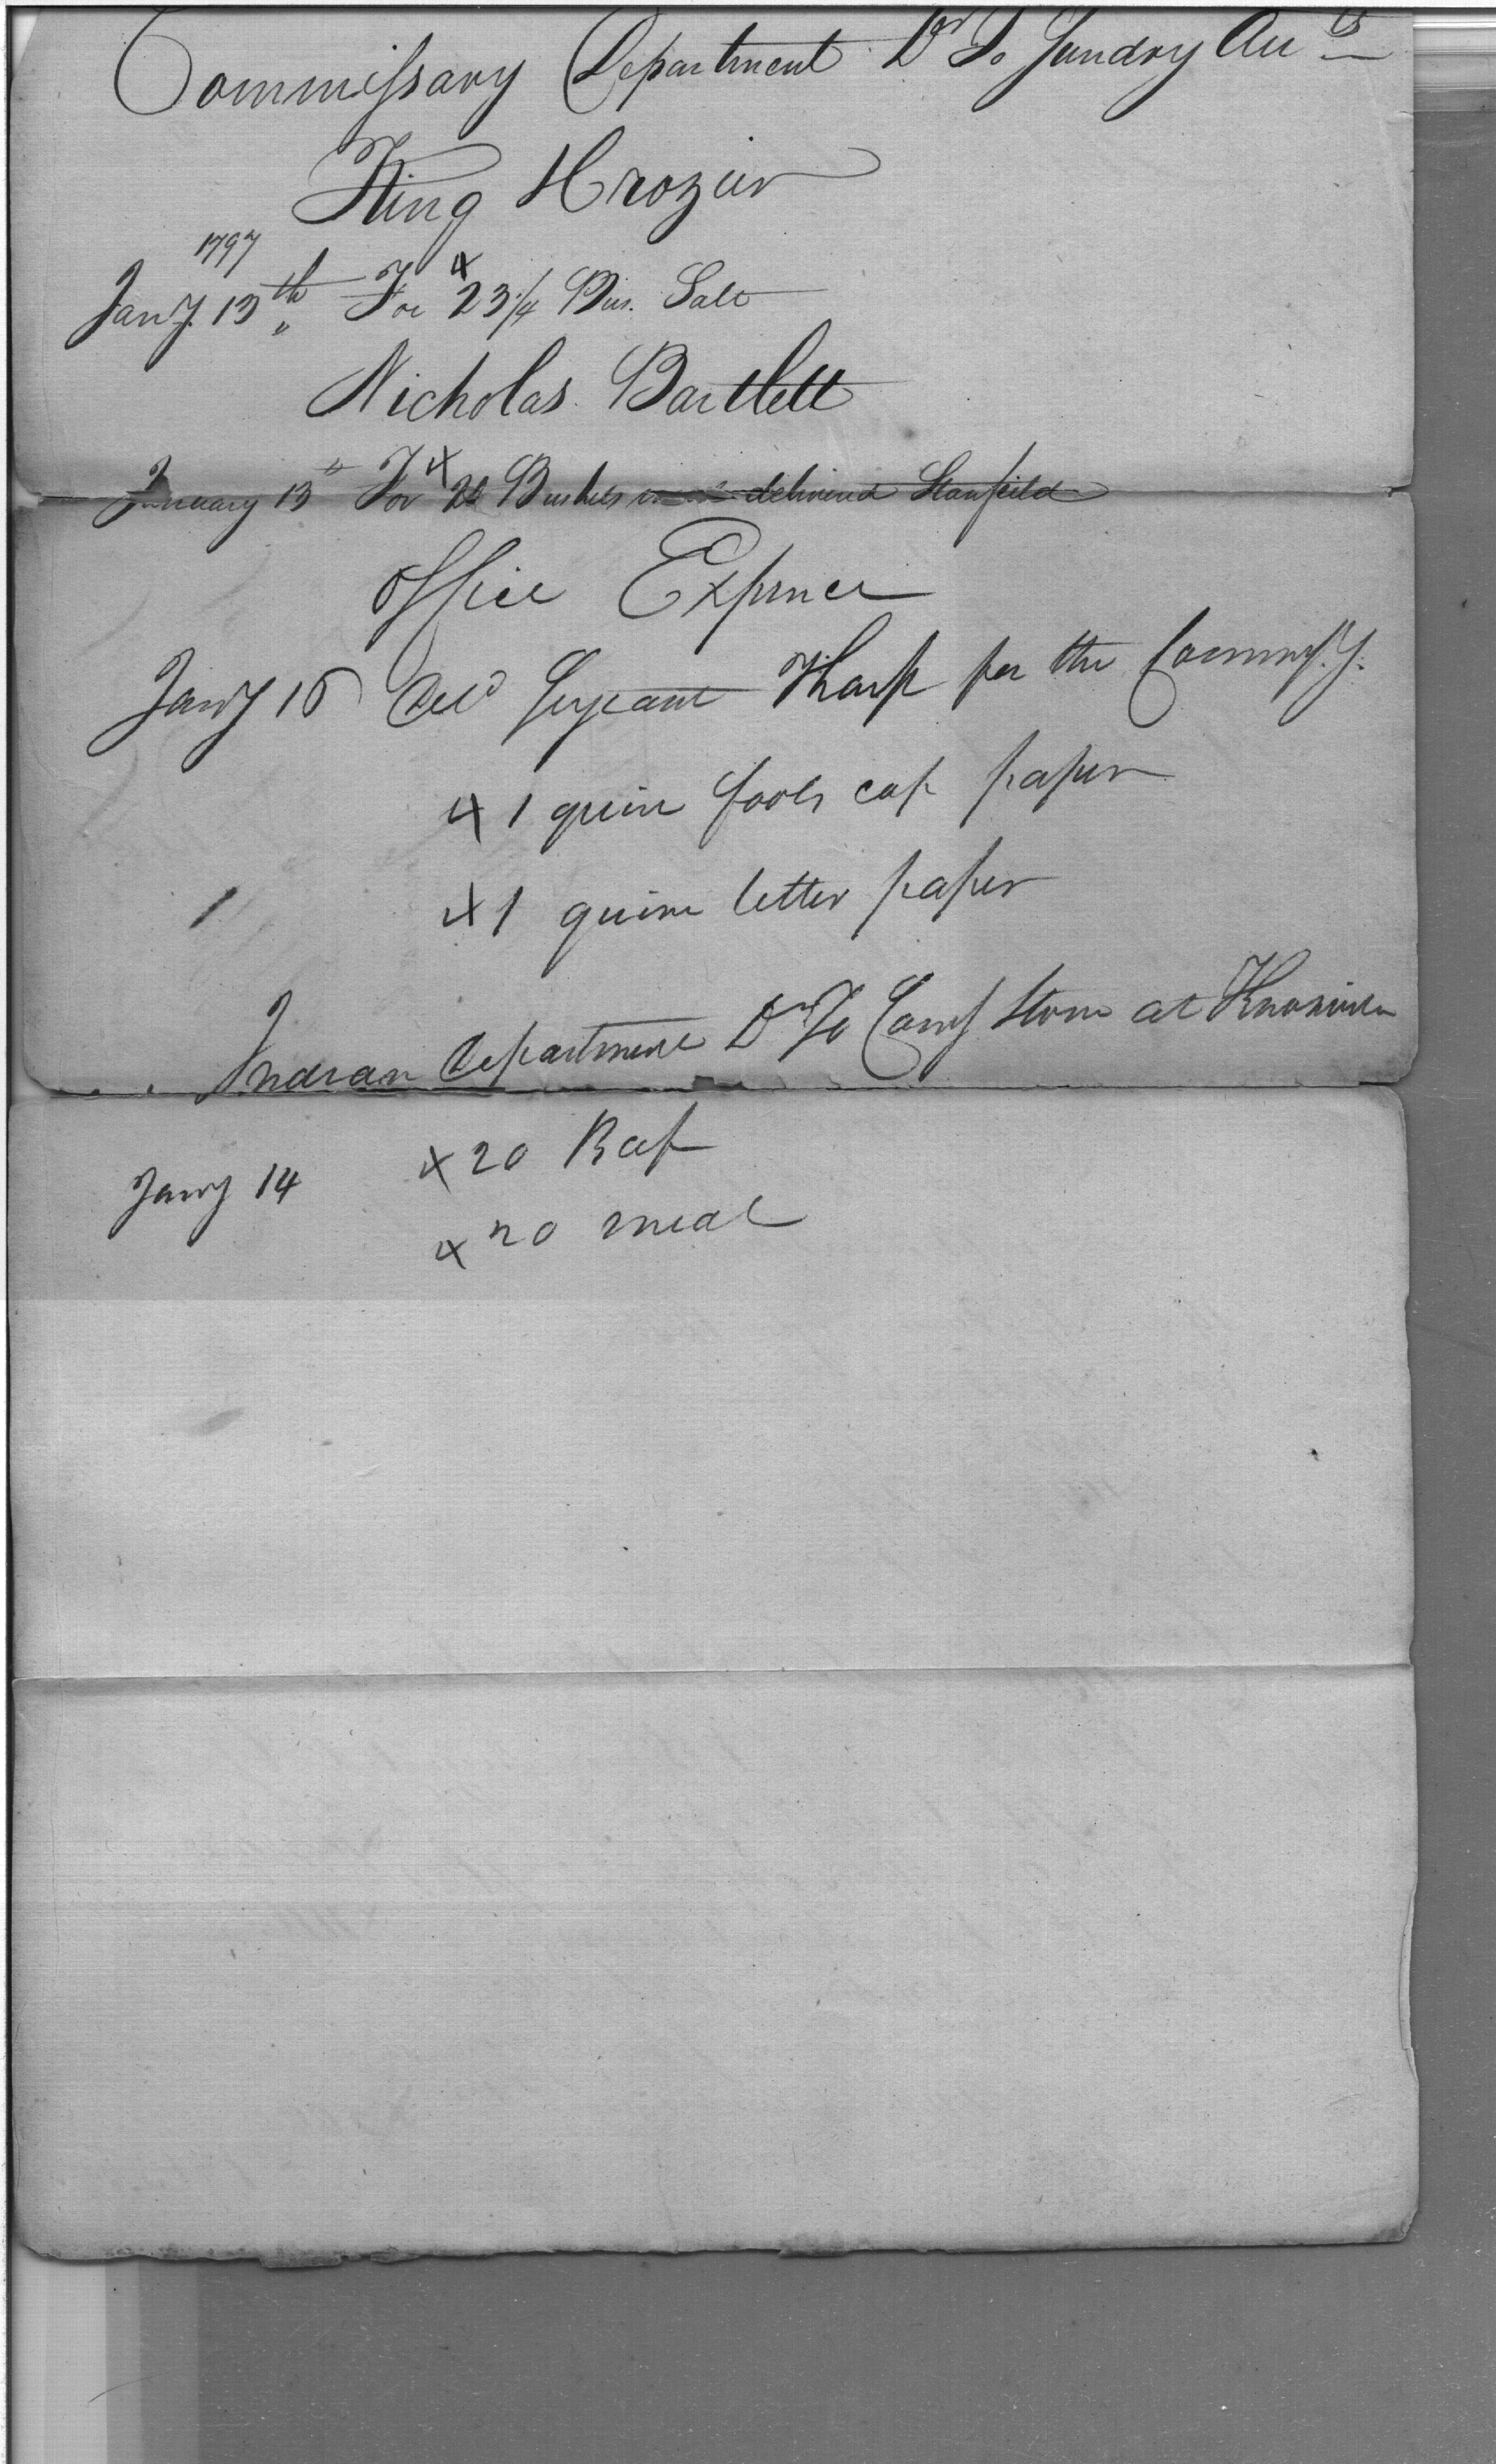 Commissary Department Dr To Sundry Accts
King & Crozier
1797
Jany. 13th For x 23 1/4 Bus. Salt
Nicholas Bartlett
January 13th For x 20 Bushels delivered Stanfield
Office Expence
Jany 16 Deld Serjeant Tharp for the Commsy.
x 1 quire fools cap paper
x 1 quire letter paper
Indian Department Dr To Comy Store at Knoxville
Jany 14 x 20 Beef
x 20 meal